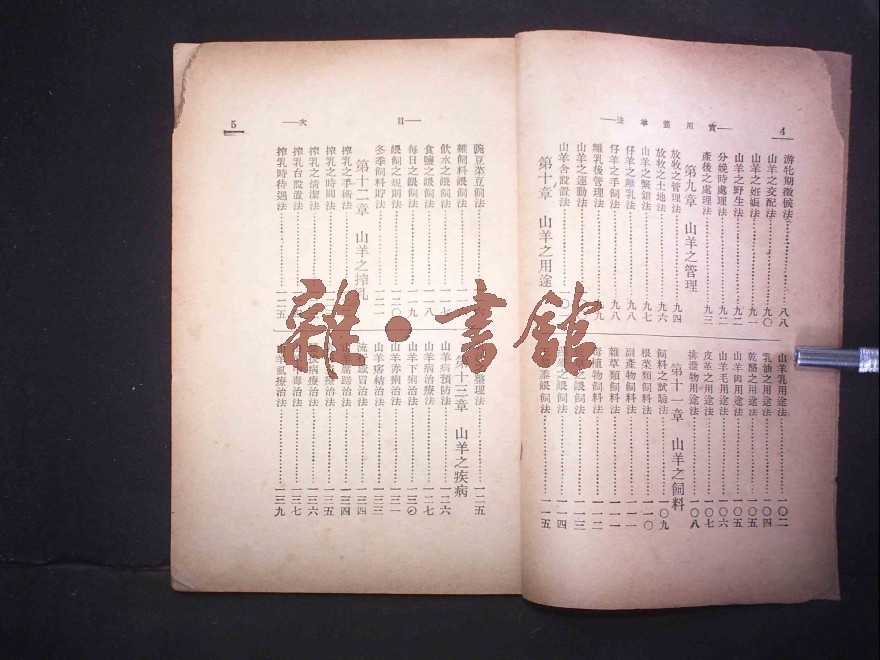 實用養羊法
4
游牝期徵候法 八八
山羊之交配法 九〇
山羊之姙娠法 九一
山羊之野生法 九二
分娩時處理法 九二
產後之處理法 九三
第九章 山羊之管理
放牧之管理法 九四
放牧之土地法 九六
山羊之繫鎖法 九七
仔羊之離乳法 九八
仔羊之手飼法 九八
離乳後管理法
山羊之運動法
山羊舍設置法
第十章 山羊之用途
山羊乳用途法 一〇二
乳油之用途法 一〇四
乾酪之用途法 一〇五
山羊肉用途法 一〇五
山羊毛用途法 一〇六
皮革之用途法 一〇七
排泄物用途法 一〇八
第十一章 山羊之飼料
飼料之試驗法 一〇九
根菜類飼料法 一一〇
副產物飼料法 一一一
雜草類飼料法 一一一
毒植物飼料法 一一二
之餵飼法 一一三
之餵飼法 一一四
季餵飼法 一一五
目次
5
豌豆菜豆飼法
雜飼料餵飼法
飲水之餵飼法
食鹽之餵飼法 一一八
每日之餵飼法 一一九
餵飼之規則法 一二〇
冬季飼料貯法 一二一
第十二章 山羊之搾乳
搾乳之手術法
搾乳之時間法
搾乳之清潔法
搾乳台設置法
搾乳時待遇法 一二五
之整理法 一二五
第十三章 山羊之疾病
山羊病預防法 一二六
山羊病治療法 一二七
山羊下痢治法 一三〇
山羊赤痢治法 一三一
山羊痞結治法 一三三
流行感冒治法 一三四
山羊腐蹄治法 一三四
療治法 一三五
病療治法 一三六
毒治法 一三七
山羊虱療治法 一三九
雜·書館